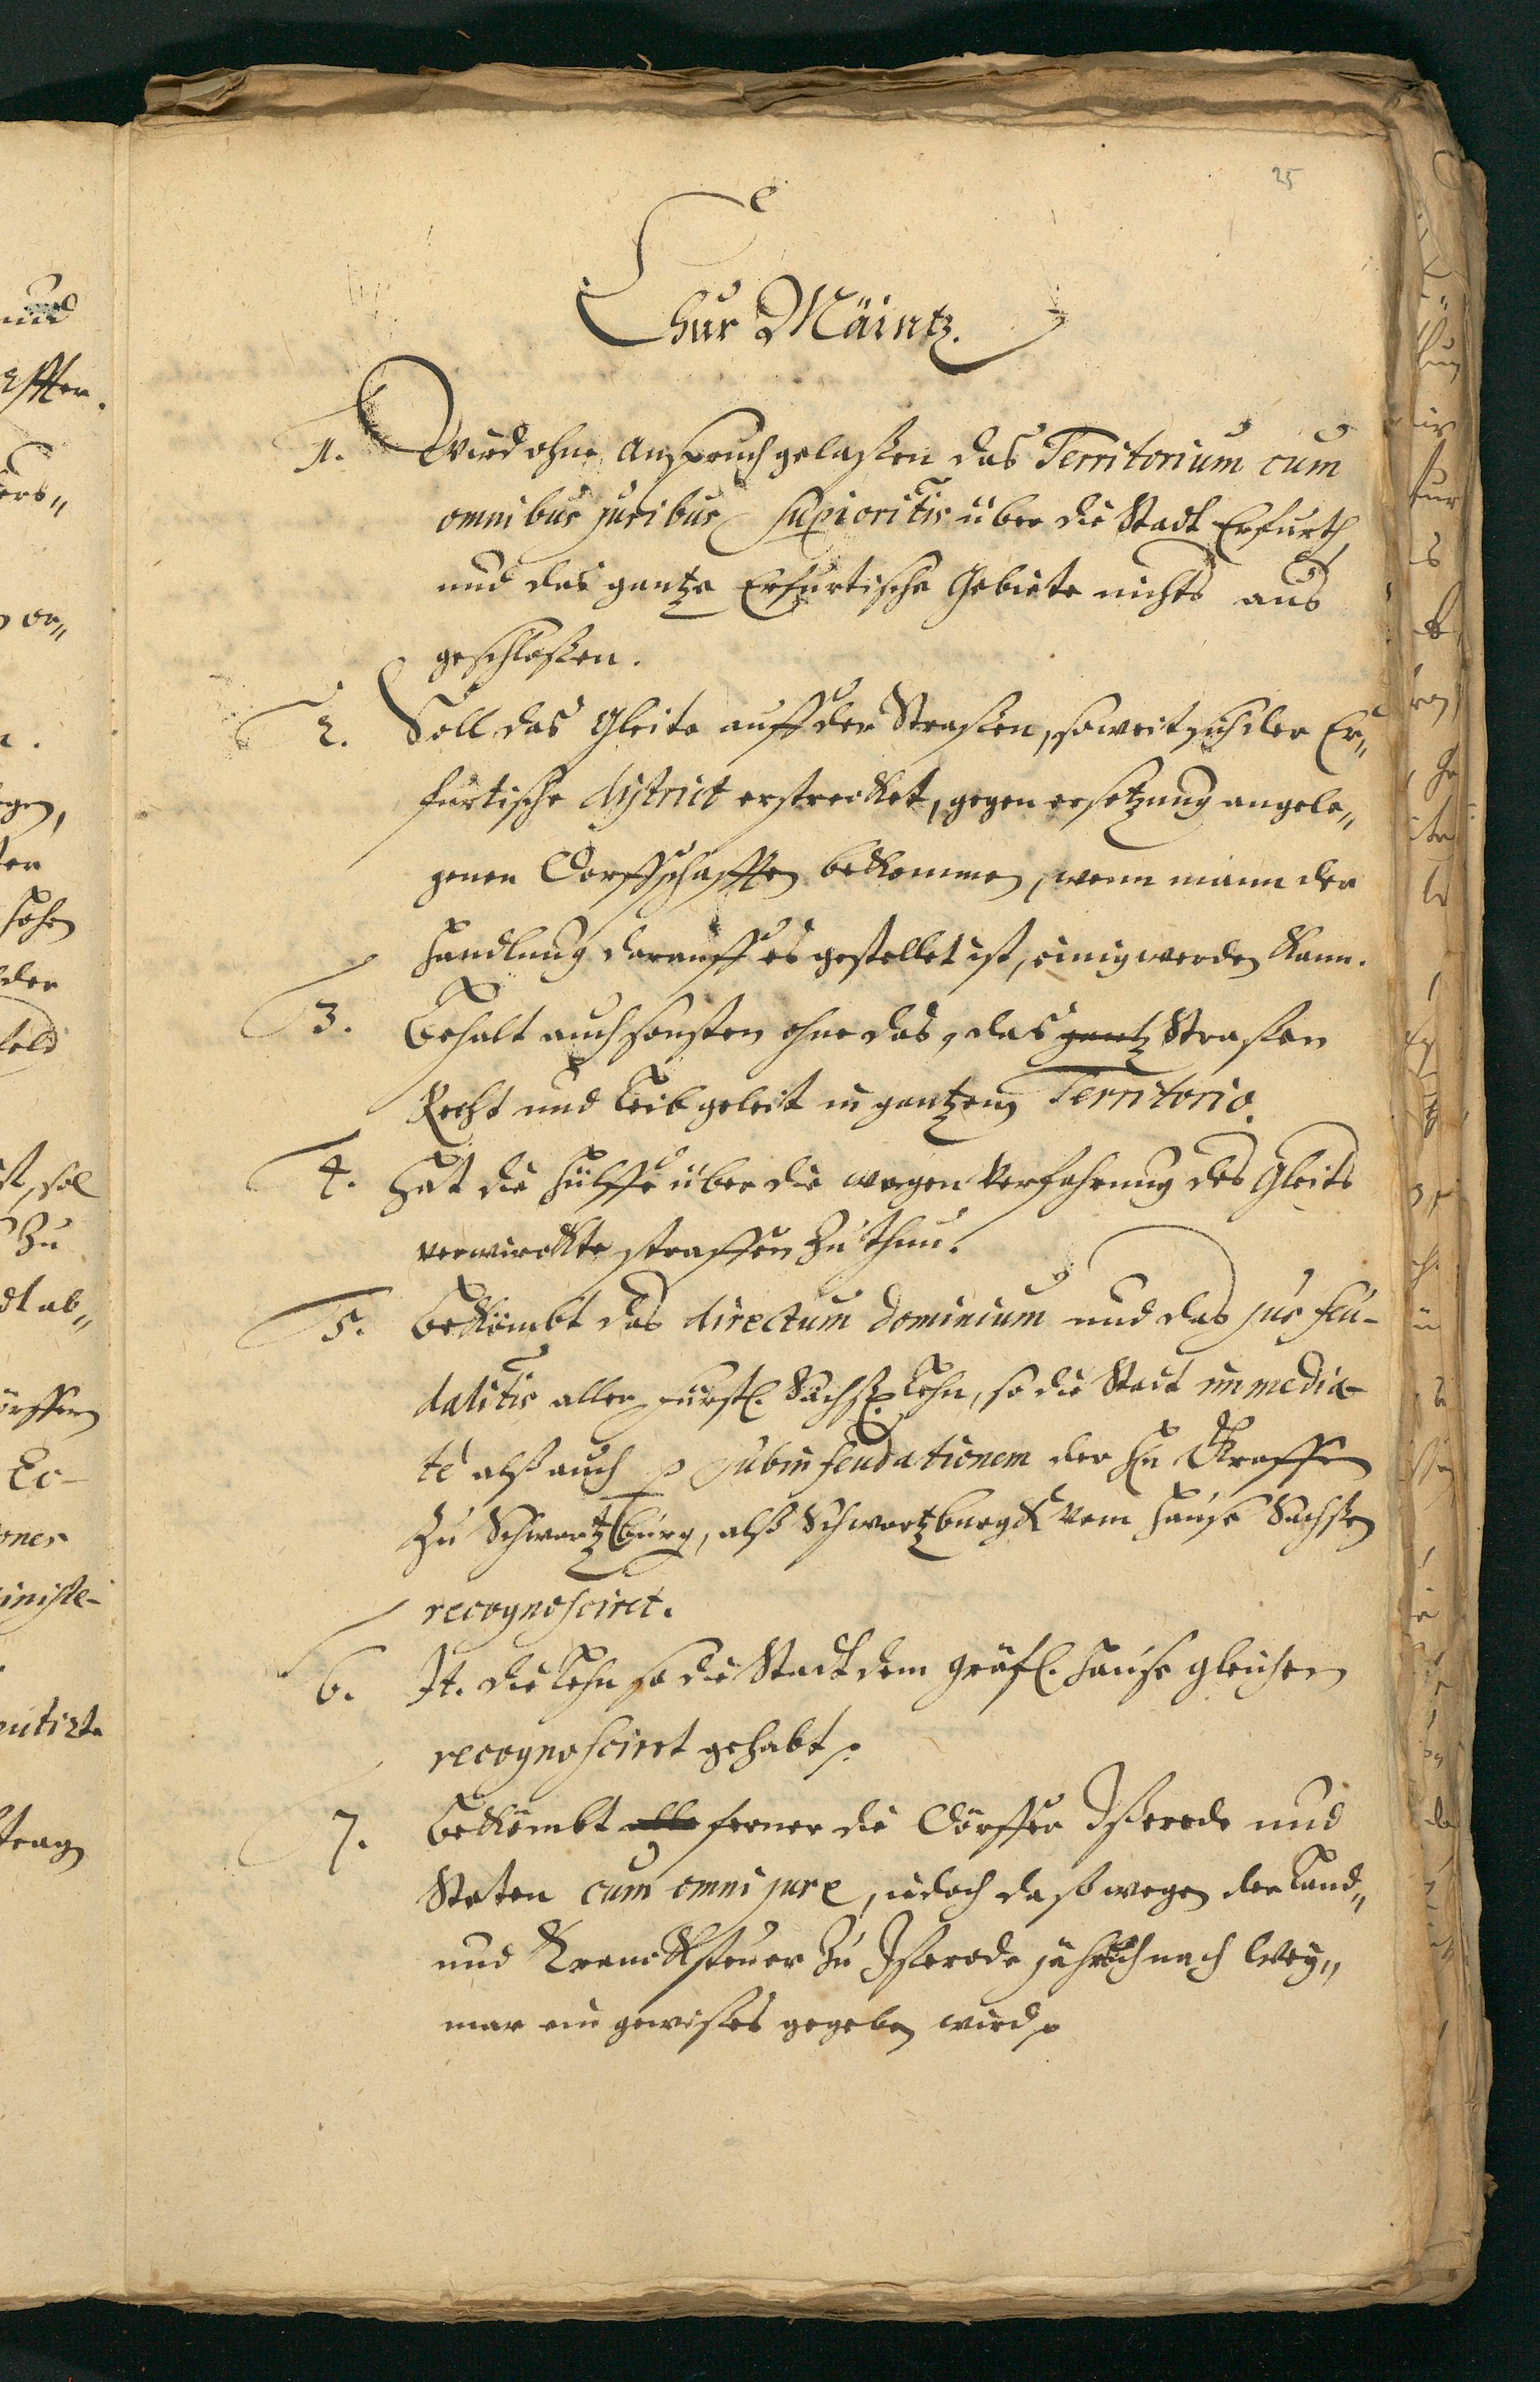 25
Chur Mäintz.
1. Wird ohne Anspruch gelaßen das Territorium cum
omnibus juribus supioritis über die Stadt Erfurth
und das gantze Erfurtische Gebiete nichts aus
geschloßen.
2. Soll das Gleite auff der Straßen, soweit sich der Er„
furtische district erstrecket, gegen ersetzung angele„
genen Dorffschafften bekommen, wenn mann der
Handlung darauff es gestellet ist, einig werden kann.
3. Behalt auch sonsten ohne das, das gantz Straßen
Recht und Leib geleit in gantzem Territorio.
4. Hat die Hülffe über die wegen Verfahrung des Gleits
verwirckte straffen zu thun.
5. Bekömbt das directum dominium und das jus feu-
dalitis aller Fürstl. Sächß. Lehn, so die Stadt immedia-
tè alß auch p subinfeudationem der Hn Graffen
zu Schwartzburg, alß Schwartzburgk vom Hause Sachßen
recognosciret.
6. It. die Lehn so die Stadt dem Gräfl. Hause Gleichen
recognosciret gehabt.
7. Bekömbt alle ferner die Dörffer Ißerode und
Stoten cum omni jure, iedoch daß wegen der Land„
und Trancksteuer zu Ißerode jährlich nach Wey„
mar ein gewißes gegeben wird